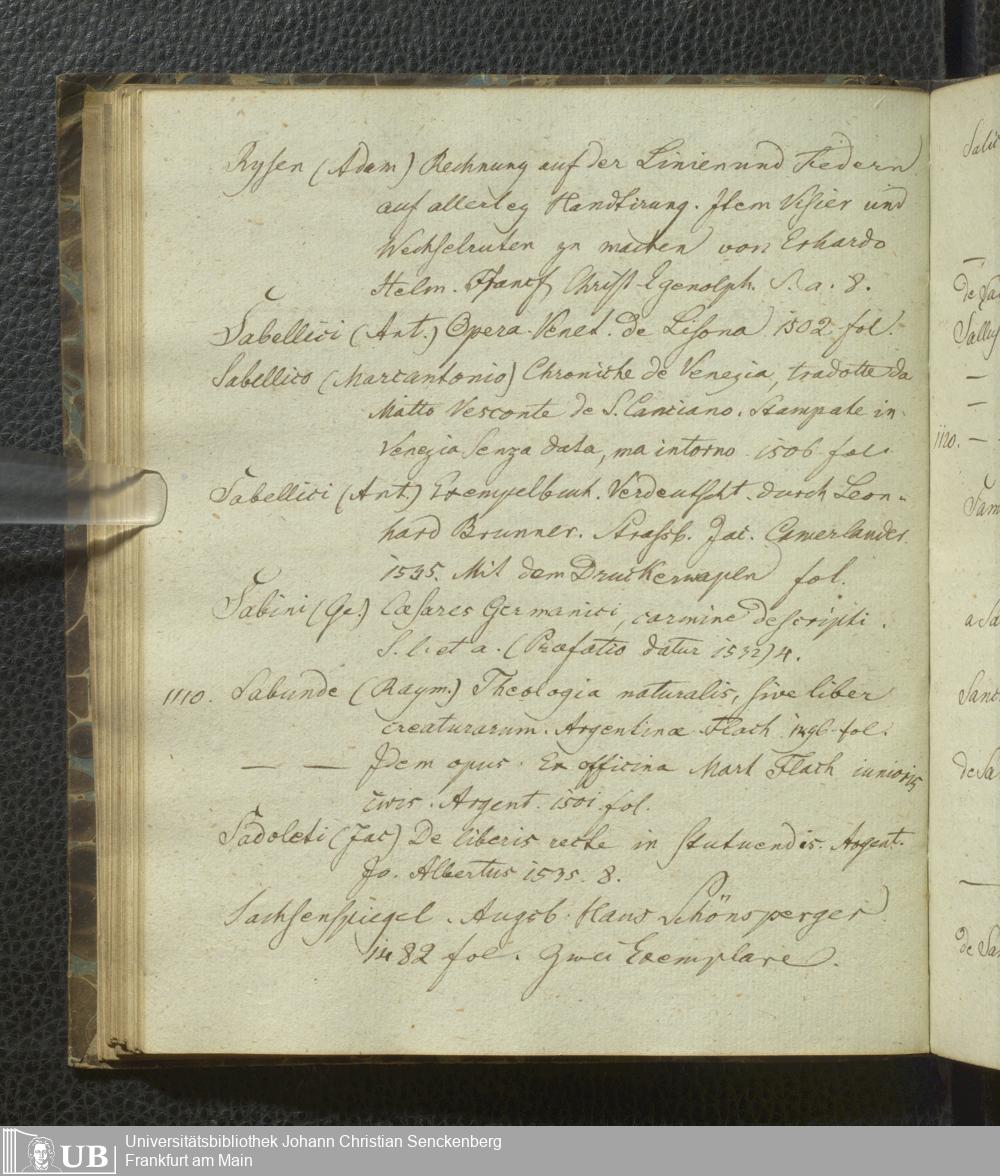 Rysen (Adam) Rechnung auf der Linien und Federn
auf allerley Handtirung. Item Visier und
Wechselruten zu machen von Erhardo
Helm. Francf. Christ. Egenolph. S. a. 8.
Sabellici (Ant.) Opera. Venet. de Lisona 1502 fol.
Sabellico (Marcantonio) Chroniche de Venezia, tradotte da
Matto Vesconte de S. Canciano. Stampate in
Venezia senza data, ma intorno 1506 fol.
Sabellici (Ant.) Exempelbuch. Verdeutscht. durch Leon-
hard Brunner. Strassb. Jac. Camerlander
1535. Mit dem Druckerwapen fol.
Sabini (Ge.) Cæsares Germanici, carmine descripti.
S. l. et a. (Præfatio datur 1532) 4.
1110. Sabunde (Raym.) Theologia naturalis, sive liber
creaturarum. Argentinæ Flach 1496 fol.
— — Idem opus. Ex officina Mart Flach iunioris
civis. Argent. 1501 fol.
Sadoleti (Jac) De liberis recte in stutuendis. Argent.
Jo. Albertus 1535. 8.
Sachsenspiegel. Augsb. Hans Schönsperger
1482 fol. Zwei Exemplare.
de Sa
1120. —
de Sa
UB
Universitätsbibliothek Johann Christian Senckenberg
Frankfurt am Main